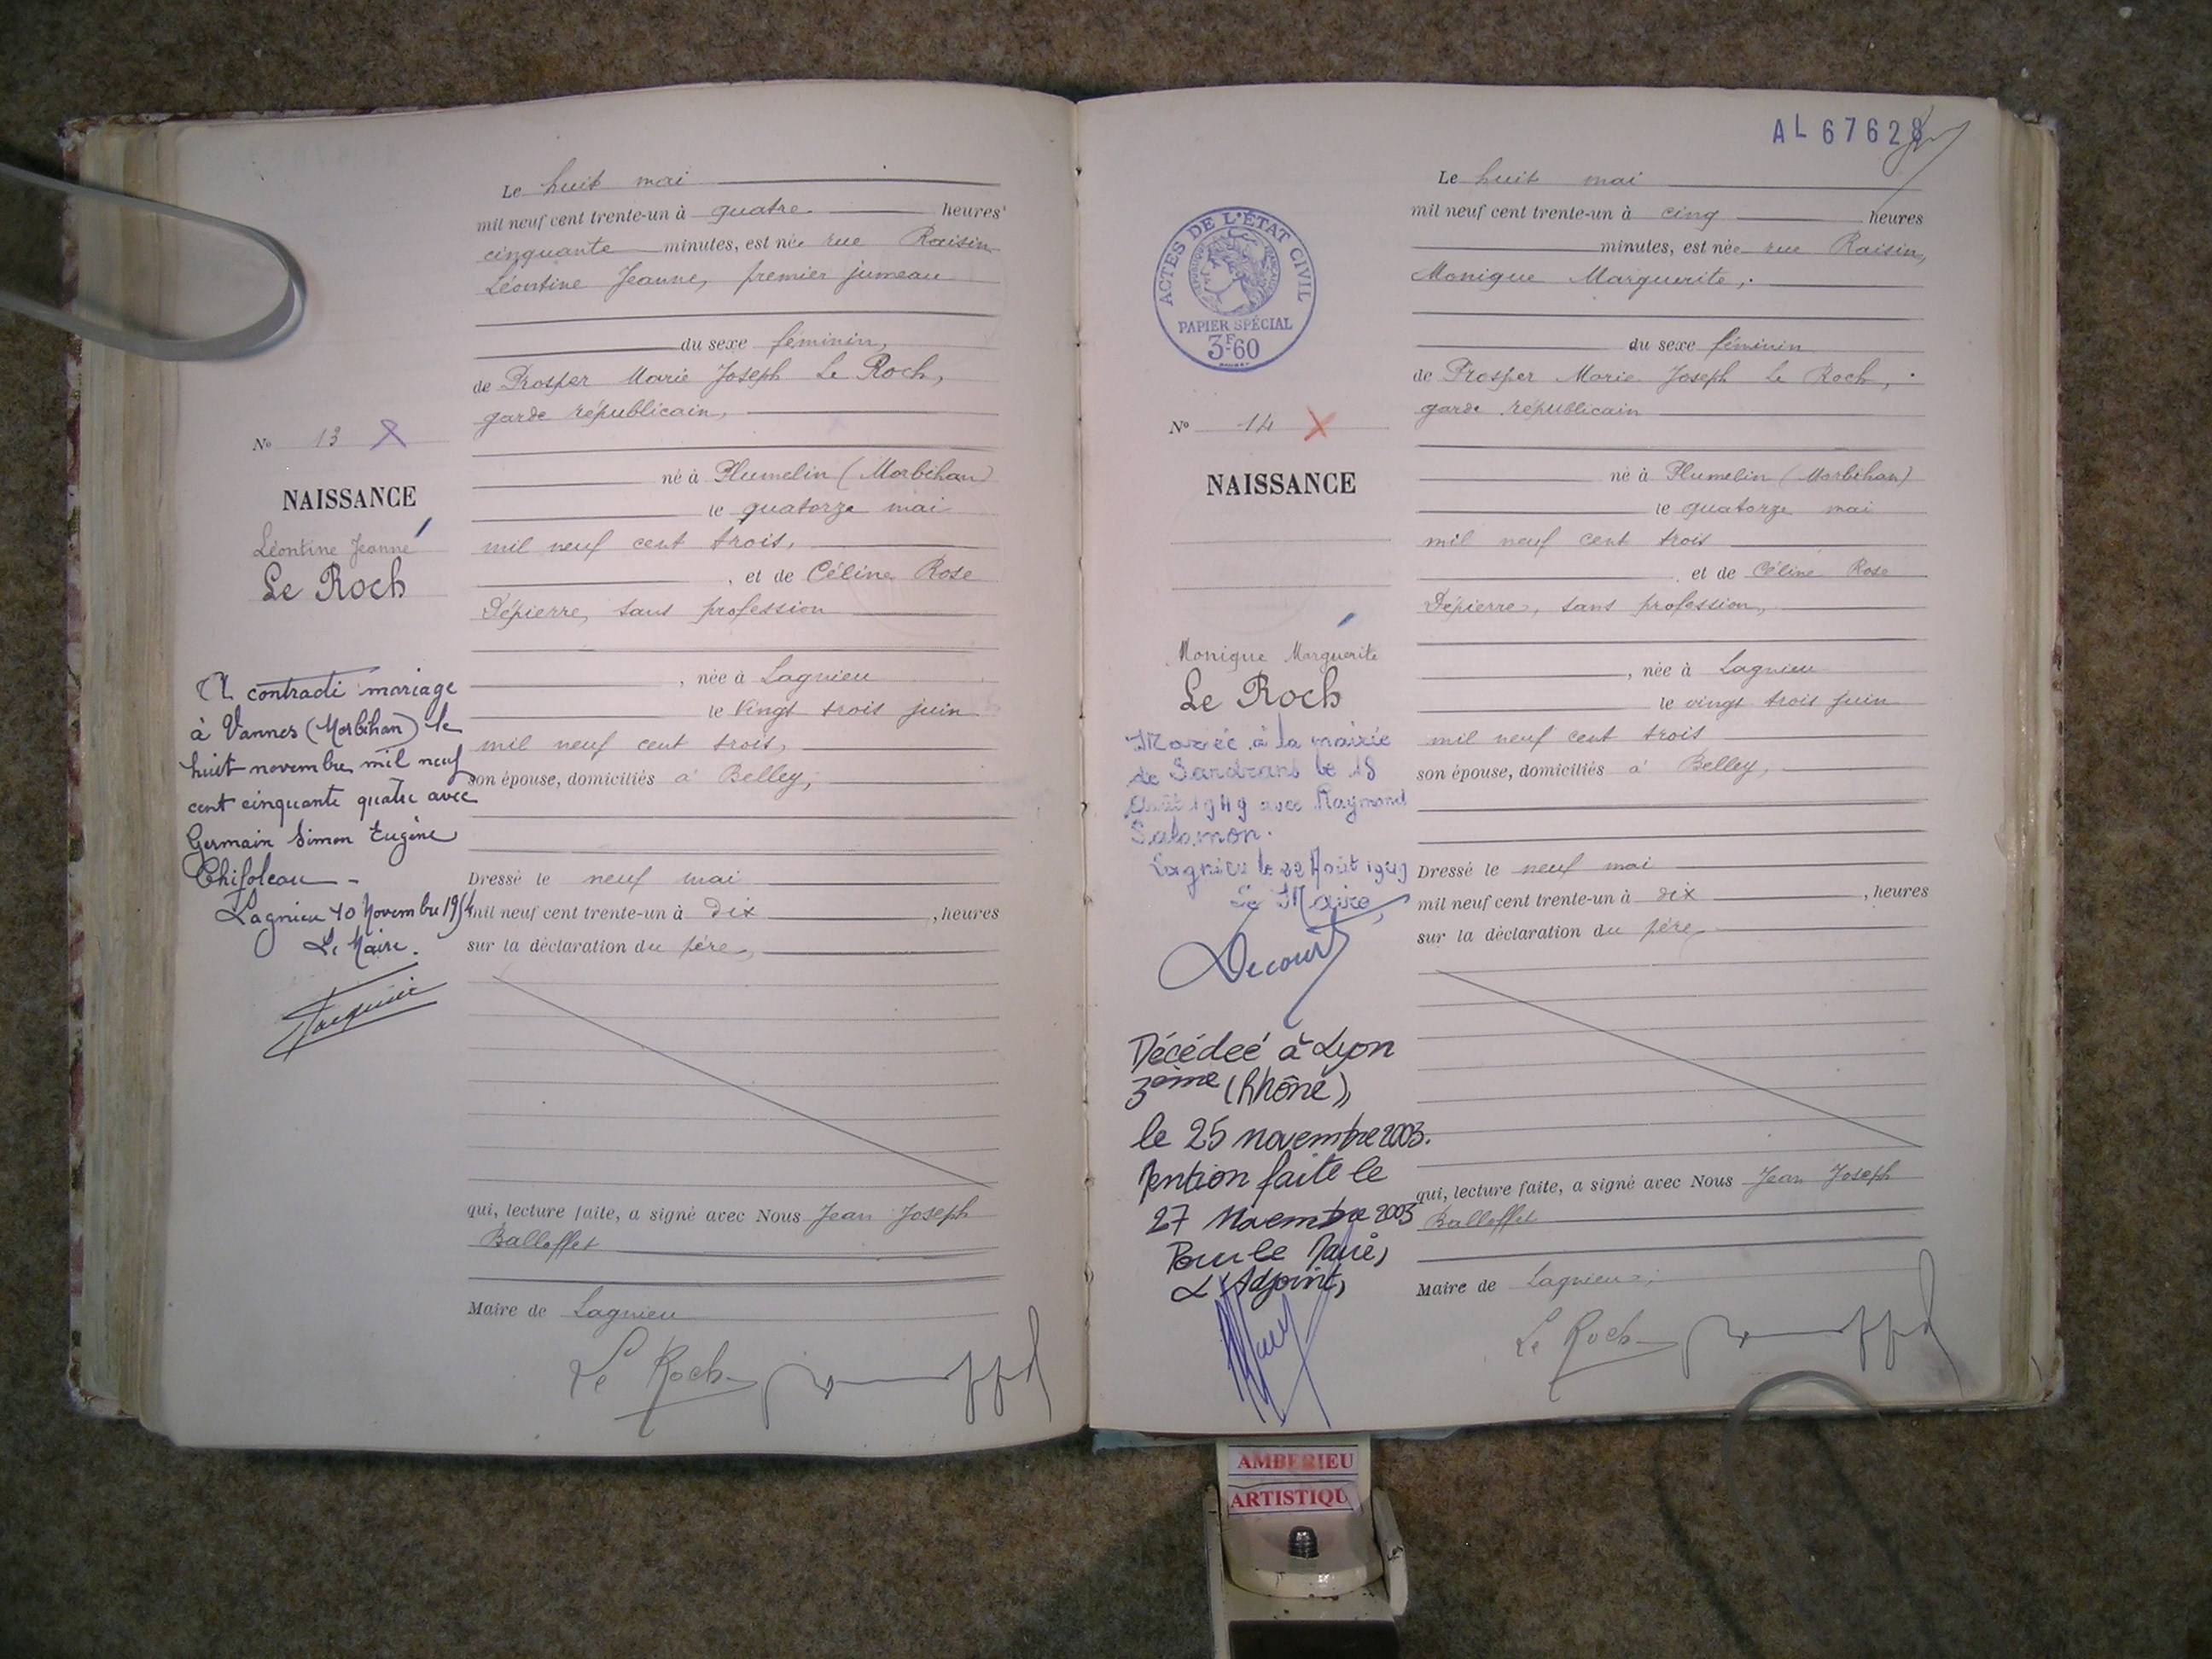 Le huit mai
mil neuf cent trente-un à quatre heures
cinquante minutes, est née rue Raisin
Léontine Jeanne, premier jumeau
du sexe féminin,
de Prosper Marie Joseph Le Roch,
garde républicain,
né à Plumelin (Morbihan)
le quatorze mai
mil neuf cent trois,
, et de Céline Rose
Dépierre, sans profession
, née à Lagnieu
le vingt trois juin
mil neuf cent trois,
son épouse, domiciliés à Belley,
Dressé le neuf mai
mil neuf cent trente-un à dix , heures
sur la déclaration du père,
qui, lecture faite, a signé avec Nous Jean Joseph
Balloffet
Maire de Lagnieu
Le Roch
No 13
NAISSANCE
Léontine Jeanne
Le Roch
A contracté mariage
à Vannes (Morbihan) le
huit novembre mil neuf
cent cinquante quatre avec
Germain Simon Eugène
Chifoleau
Lagnieu 10 Novembre 1954
Le Maire.
AL 67628
ACTES DE L'ÉTAT CIVIL
PAPIER SPÉCIAL
3F.60
No 14
NAISSANCE
Monique Marguerite
Le Roch
Mariée à la mairie
de Sandrans le 18
Août 1949 avec Raymond
Salomon.
Lagnieu le 22 Août 1949
Le Maire,
Décédeé à Lyon
3ème (Rhône),
le 25 novembre 2003.
Mention faite le
27 Novembre 2003
Pour le Maire,
L'Adjoint,
Le huit mai
mil neuf cent trente-un à cinq heures
minutes, est née rue Raisin,
Monique Marguerite,
du sexe féminin
de Prosper Marie Joseph Le Roch,
garde républicain
né à Plumelin (Morbihan)
le quatorze mai
mil neuf cent trois
, et de Céline Rose
Dépierre, sans profession,
, née à Lagnieu
le vingt trois juin
mil neuf cent trois
son épouse, domiciliés à Belley,
Dressé le neuf mai
mil neuf cent trente-un à dix , heures
sur la déclaration du père,
qui, lecture faite, a signé avec Nous Jean Joseph
Balloffet
Maire de Lagnieu
Le Roch
AMBERIEU
ARTISTIQU